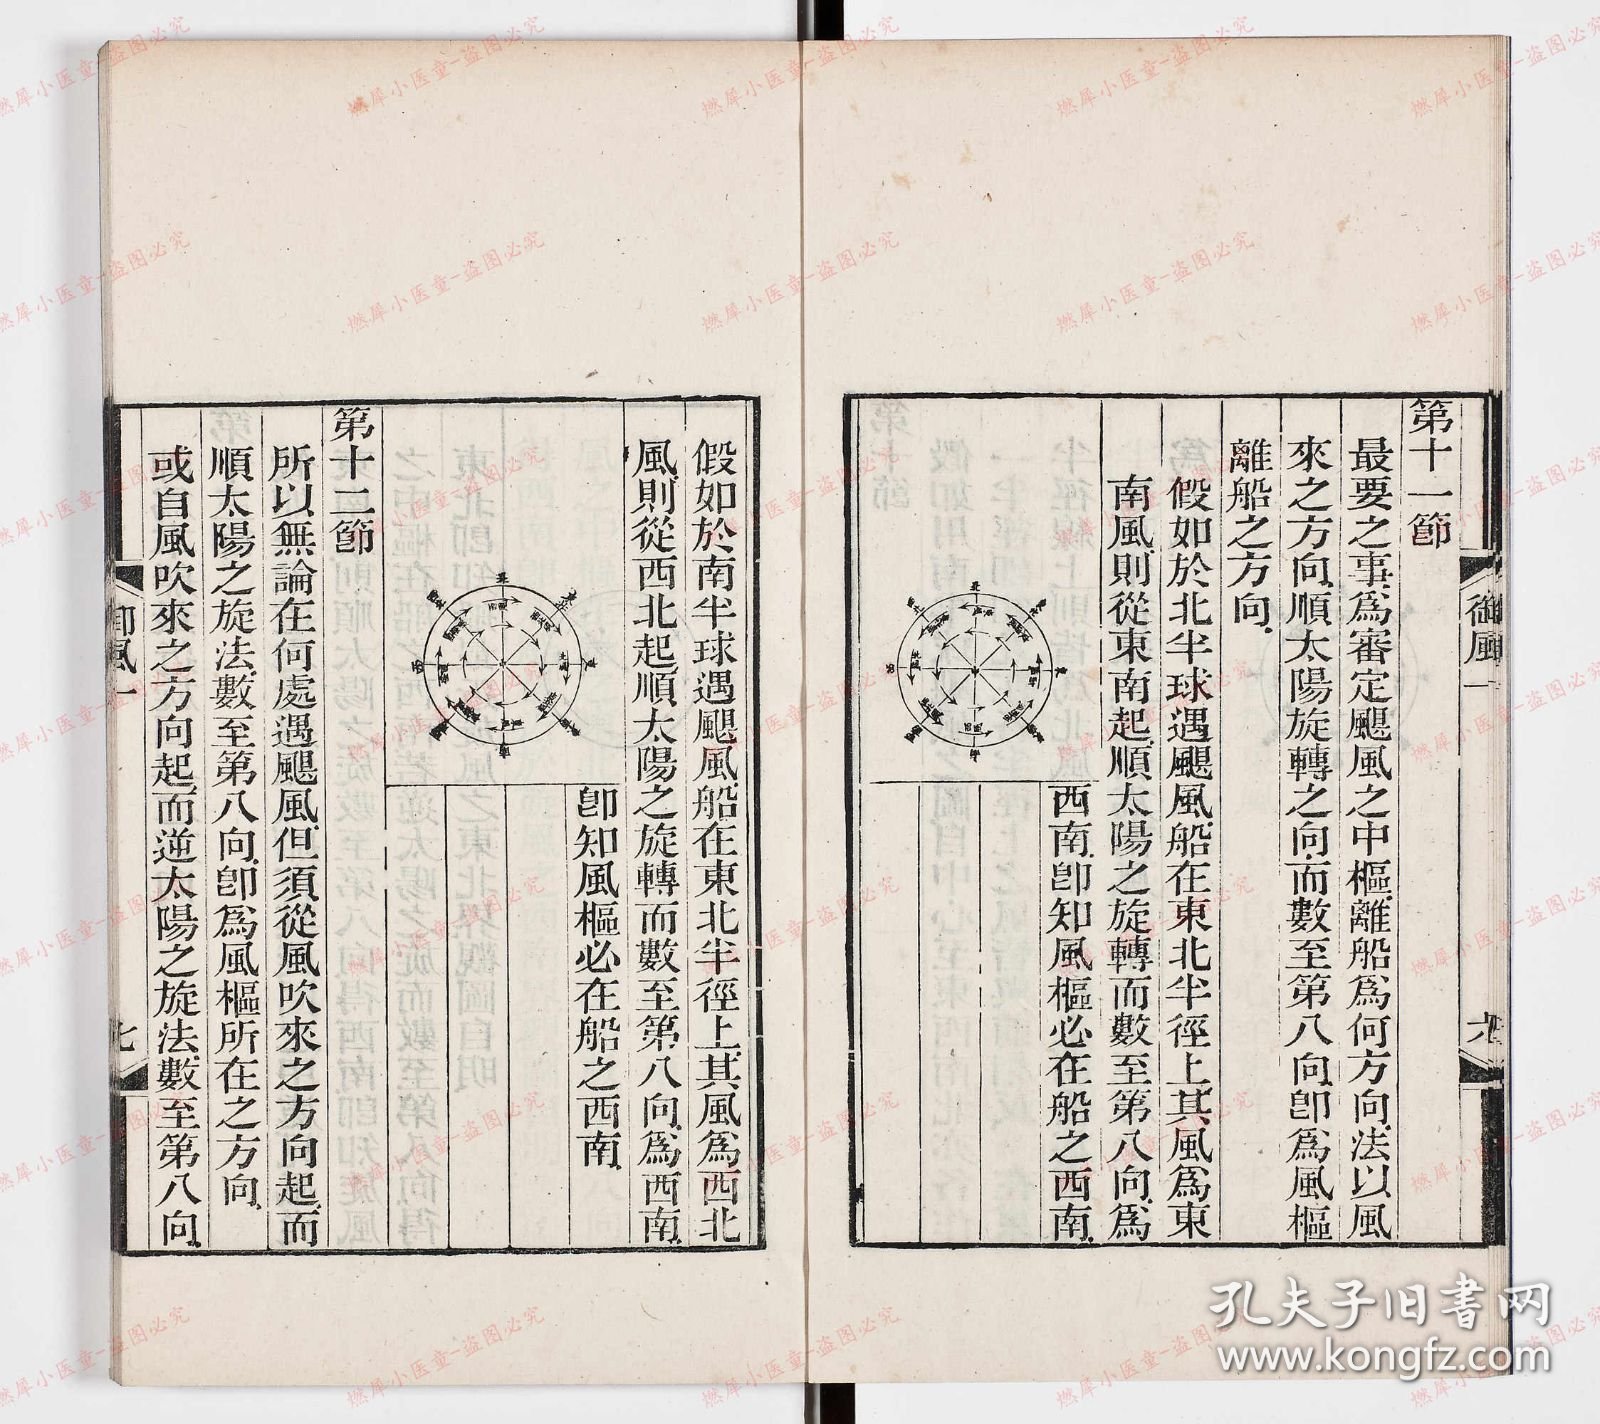 第十一節
最要之事爲審定颶風之中樞離船爲何方向法以風
來之方向順太陽旋轉之向而數至第八向卽爲風樞
離船之方向
假如於北半球遇颶風船在東北半徑上其風爲東
南風則從東南起順太陽之旋轉而數至第八向爲
西南卽知風樞必在船之西南
御風一
六
假如於南半球遇颶風船在東北半徑上其風爲西北
風則從西北起順太陽之旋轉而數至第八向爲西南
卽知風樞必在船之西南
第十二節
所以無論在何處遇颶風但須從風吹來之方向起而
順太陽之旋法數至第八向卽爲風樞所在之方向
或自風吹來之方向起而逆太陽之旋法數至第八向
御風一
七
孔夫子旧书网
www.kongfz.com
燃犀小医童-盗图必究